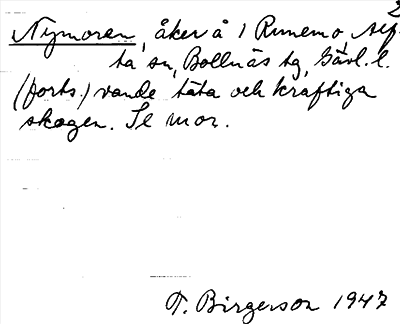 2
Nymoren, åker å 1 Runemo, Alf-
ta sn, Bollnäs tg, Gävl. l.
(forts.) vande täta och kraftiga
skogen. Se mor.
T. Birgerson 1947